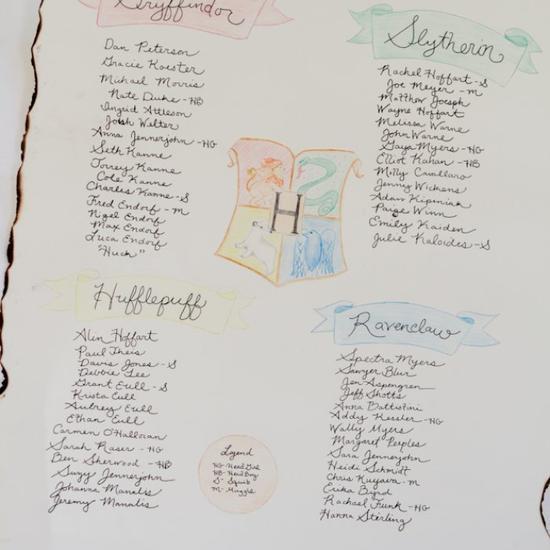 Gryffindor
Dan Peterson
Gracie Koester
Michael Morris
Nate Duke - HB
Ingrid Attleson
Josh Welter
Anna Jennerjohn - HG
Seth Kanne
Torrey Kanne
Cole Kanne
Charles Kanne - S
Fred Endorf - M
Nigel Endorf
Max Endorf
Luca Endorf
"Huck"
Slytherin
Rachel Hoffart - S
Joe Meyer - M
Matthew Joseph
Wayne Hoffart
Melissa Warne
John Warne
Gaya Myers - HG
Eliot Kahan - HB
Molly Camillaro
Jenny Wickens
Adam Kipeniak
Paige Winn
Emily Kaiden
Julie Kaloides - S
H
Hufflepuff
Alin Hoffart
Paul Theis
Davis Jones - S
Debbie Lee
Grant Eull - S
Krista Eull
Aubrey Eull
Ethan Eull
Carmen O'Halloran
Sarah Raser - HG
Ben Sherwood - HB
Suzy Jennerjohn
Johanna Manalis
Jeremy Manalis
Ravenclaw
Spectra Myers
Sawyer Blur
Jen Aspengren
Jeff Shotts
Anna Battistini
Addy Kessler - HG
Wally Myers
Margaret Peeples
Sara Jennerjohn
Heidi Schmidt
Chris Kujawa - M
Erika Byrd
Rachael Funk - HG
Hanna Sterling
Legend
HG - Head Girl
HB - Head Boy
S - Squib
M - Muggle